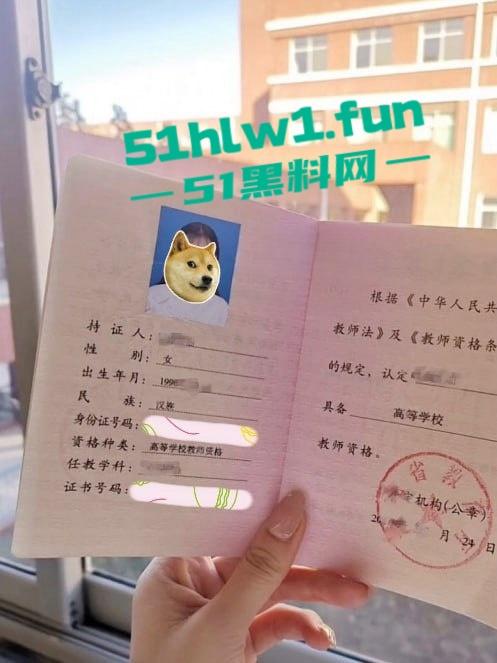 51hlw1.fun
— 51黑料网 —
持证人:
性别: 女
出生年月: 1996
民族: 汉族
身份证号码:
资格种类: 高等学校教师资格
任教学科:
证书号码:
根据《中华人民共
教师法》及《教师资格条
的规定, 认定
具备 高等学校
教师资格。
省教
定机构(公章)
20
月 24 日